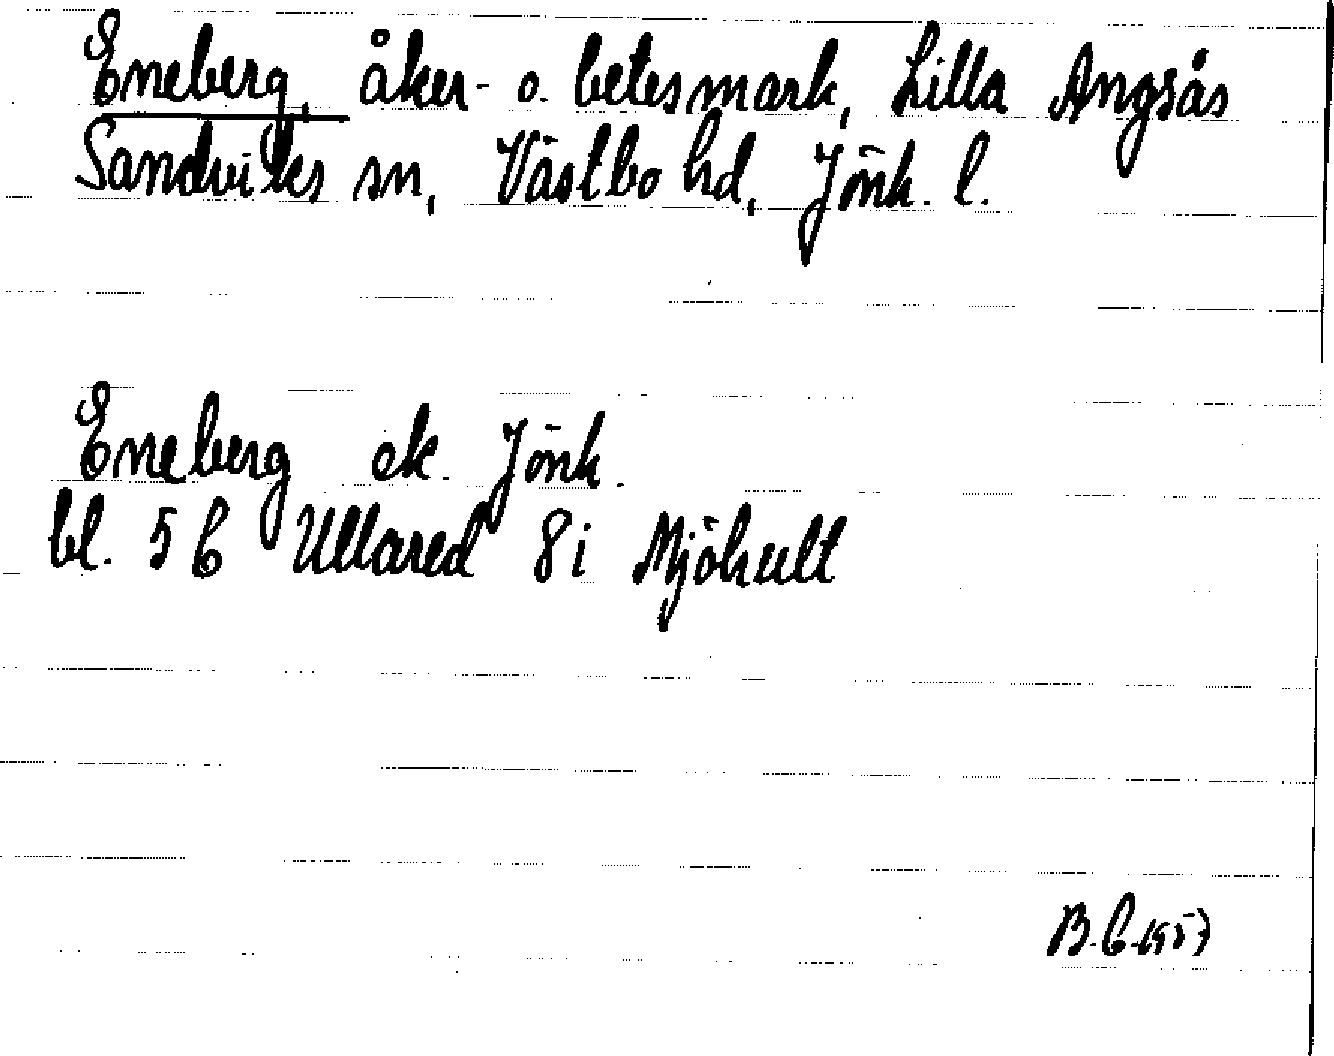 Eneberg, åker- o. betesmark, Lilla Angsås
Sandviks sn, Västbo hd, Jönk. l.
Eneberg ek. Jönk.
bl. 5 C Ullared 8i Mjöhult
B.C. 1957